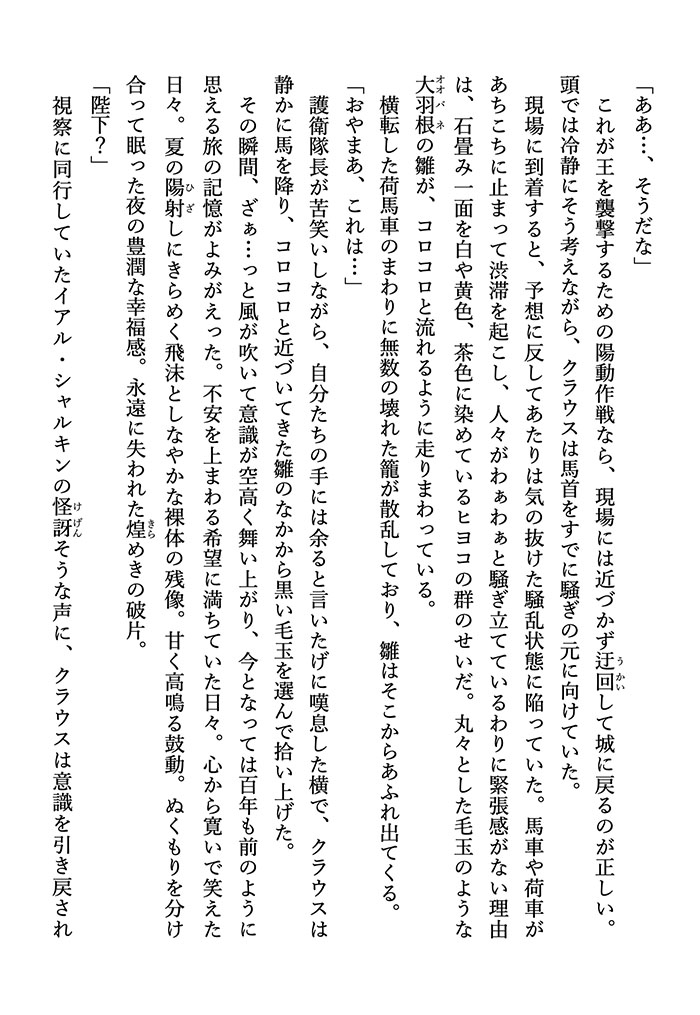 「ああ…、そうだな」
これが王を襲撃するための陽動作戦なら、現場には近づかず迂回して城に戻るのが正しい。
頭では冷静にそう考えながら、クラウスは馬首をすでに騒ぎの元に向けていた。
現場に到着すると、予想に反してあたりは気の抜けた騒乱状態に陥っていた。馬車や荷車が
あちこちに止まって渋滞を起こし、人々がわぁわぁと騒ぎ立てているわりに緊張感がない理由
は、石畳み一面を白や黄色、茶色に染めているヒヨコの群のせいだ。丸々とした毛玉のような
大羽根の雛が、コロコロと流れるように走りまわっている。
横転した荷馬車のまわりに無数の壊れた籠が散乱しており、雛はそこからあふれ出てくる。
「おやまあ、これは…」
護衛隊長が苦笑いしながら、自分たちの手には余ると言いたげに嘆息した横で、クラウスは
静かに馬を降り、コロコロと近づいてきた雛のなかから黒い毛玉を選んで拾い上げた。
その瞬間、ざぁ…っと風が吹いて意識が空高く舞い上がり、今となっては百年も前のように
思える旅の記憶がよみがえった。不安を上まわる希望に満ちていた日々。心から寛いで笑えた
日々。夏の陽射しにきらめく飛沫としなやかな裸体の残像。甘く高鳴る鼓動。ぬくもりを分け
合って眠った夜の豊潤な幸福感。永遠に失われた煌めきの破片。
「陛下？」
視察に同行していたイアル・シャルキンの怪訝そうな声に、クラウスは意識を引き戻され